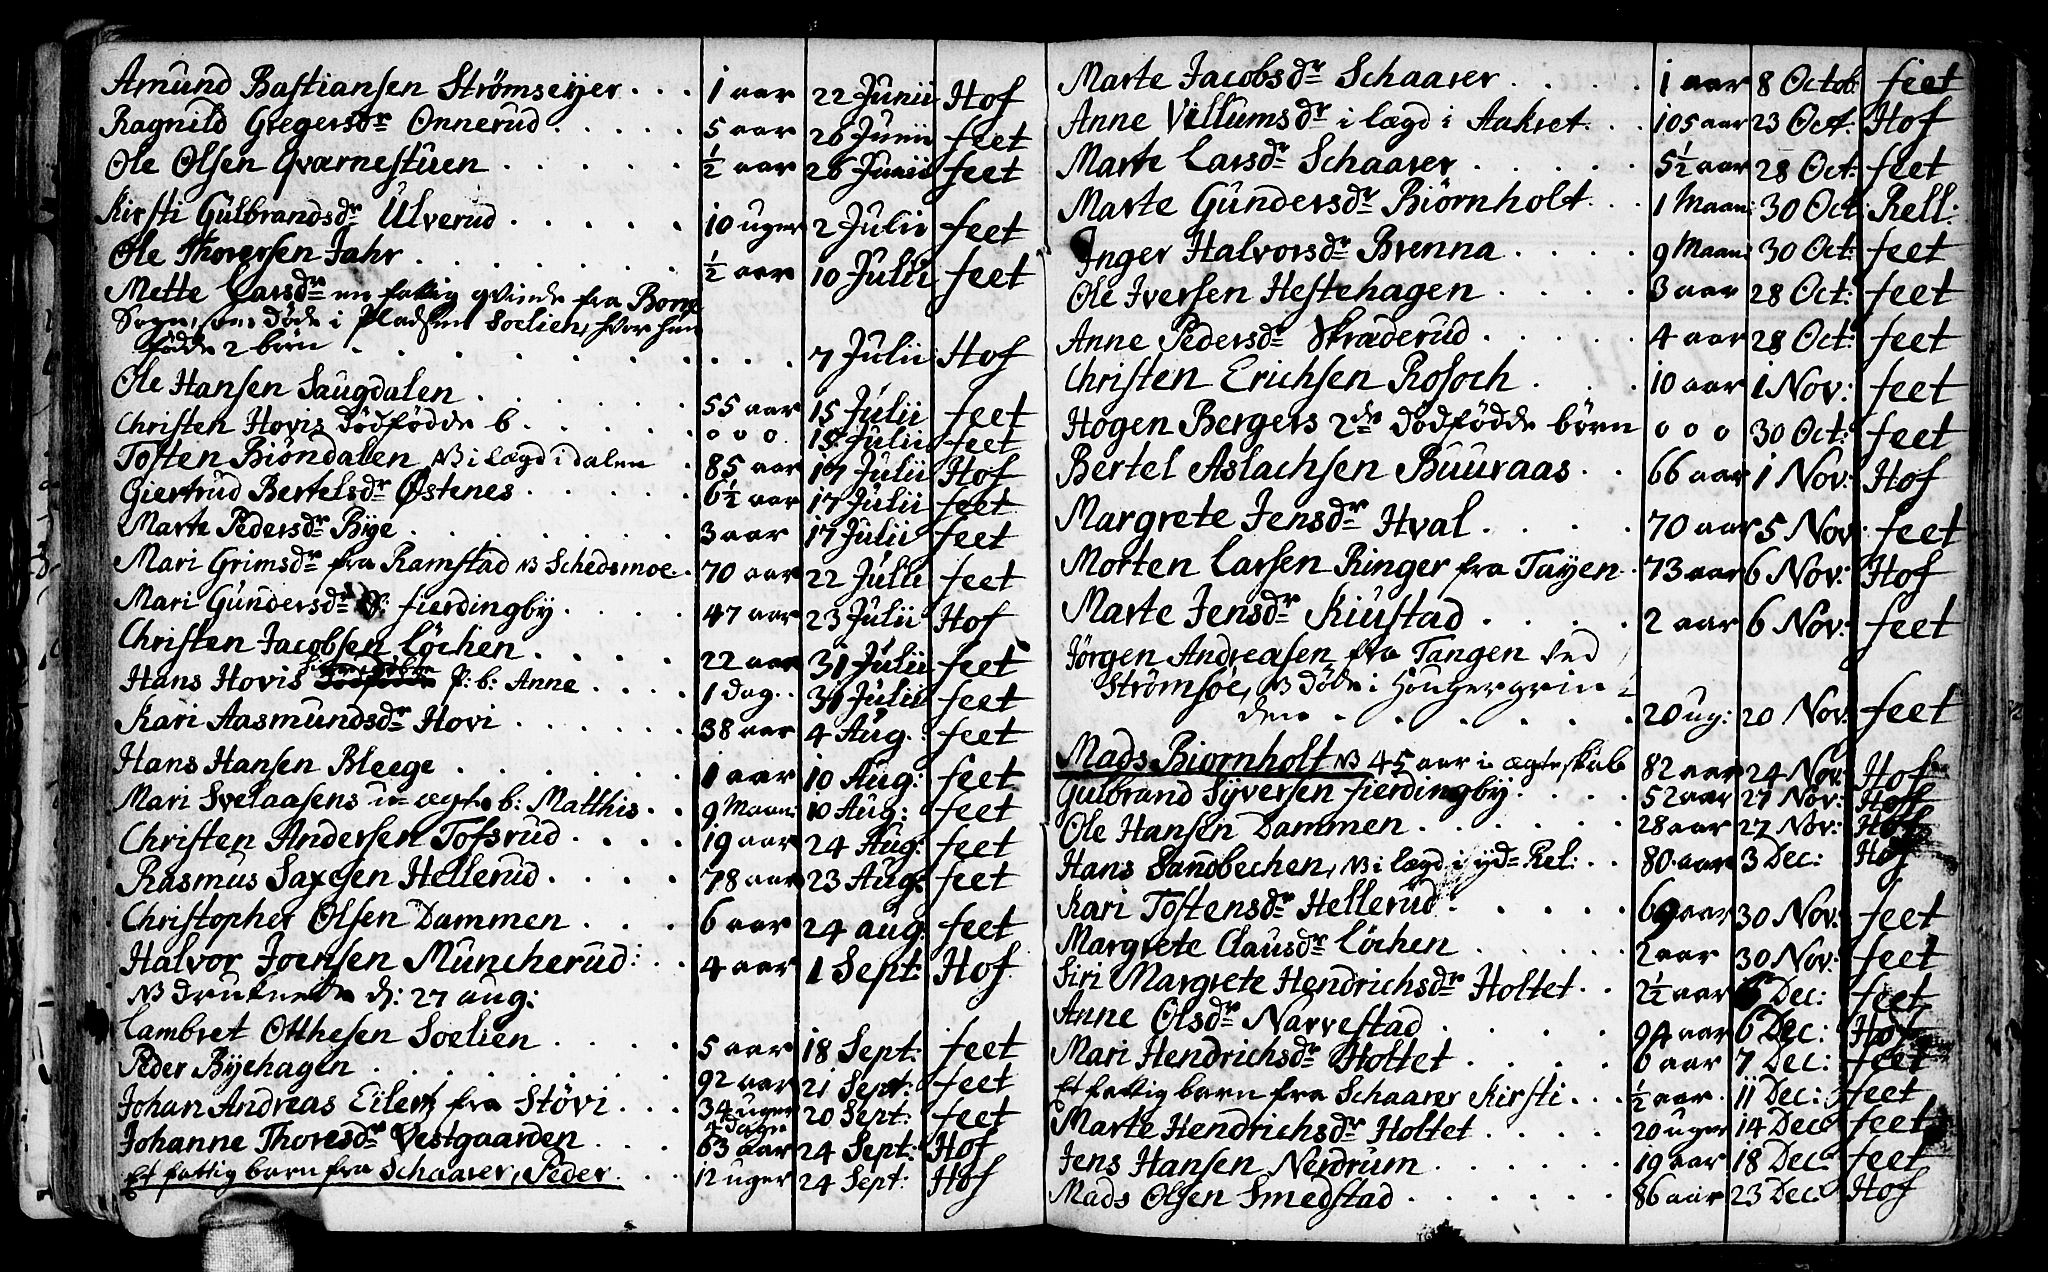 Amund Bastiansen Strømseyer . . . 1 aar 22 Junii Hof
Ragnild Gregersdr Onnerud . . . . . 5 aar 26 Junii feet
Ole Olsen Qværnestuen . . . . . ½ aar 26 Junii feet
Kirsti Gulbrandsdr Ulverud . . . . . 10 uger 2 Julii feet
Ole Thoresen Jahr . . . . . . . ½ aar 10 Julii feet
Mette Larsdr en fattig qvinde fra Borge
Sogn, som døde i Pladsen Soelien, hvor hun
fødde 2 børn . . . . . . . . 7 Julii Hof
Ole Hansen Saugdalen . . . . . . 55 aar 15 Julii feet
Christen Hovis dødfødde b . . . . . o o o 15 Julii feet
Tosten Biøndalen NB i lægd i dalen . 85 aar 17 Julii Hof
Giertrud Bertelsdr Østenes . . . . . 6½ aar 17 Julii feet
Marte Pedersdr Bye . . . . . . . 3 aar 17 Julii feet
Mari Grimsdr fra Ramstad NB Schedsmoe . 70 aar 22 Julii feet
Mari Gundersdr fierdingby . . . . 47 aar 23 Julii Hof
Christen Jacobsen Löchen . . . . 22 aar 31 Julii feet
Hans Hovis P: b: Anne . . . . 1 dag . . 31 Julii feet
Kari Aasmundsdr Hovi . . . . . . 38 aar 4 Aug. feet
Hans Hansen Bleege . . . . . . 1 aar 10 Aug: feet
Mari Svelaasens u= ægte b: Matthis . . 9 Maan: 10 Aug: feet
Christen Andersen Tofsrud . . . . 19 aar 24 Aug: feet
Rasmus Saxesen Hellerud . . . . 78 aar 23 Aug: feet
Christopher Olsen Dammen . . . 6 aar 24 aug: feet
Halvor Joensen Müncherud: . . 4 aar 1 Sept: Hof
NB druknede d: 27 aug:
Lambret Otthesen Soelien . . . . . 5 aar 18 Sept: feet
Peder Byehagen . . . . . . . 92 aar 21 Sept: feet
Johan Andreas Eilert fra Støvi . . . 34 uger 4 dage 20 Sept: feet
Johanne Thoresdr Vestgaarden . . . 63 aar 24 Sept: Hof
Et fattig barn fra Schaarer, Peder . . . 12 uger 24 Sept: Hof
Marte Jacobsdr Schaarer . . . . 1 aar 8 Octob: feet
Anne Villumsdr i lægd i Aakret . . 105 aar 23 Oct. Hof
Marte Larsdr Schaarer . . . . . 5½ aar 28 Oct: feet
Marte Gundersdr Biørnholt . . 1 Maan: 30 Oct: Rell:
Inger Halvorsdr Brenna . . . . 9 Maan: 30 Oct: feet
Ole Iversen Hestehagen . . . . 3 aar 28 Oct: feet
Anne Pedersdr Skræderud . . . . . 4 aar 28 Oct: feet
Christen Erichsen Rosoch . . . 10 aar 1 Nov: feet
Hogen Bergers 2de dødfødde børn o o o 30 Oct: feet
Bertel Aslachsen Buuraas . . 66 aar 1 Nov: Hof
Margrete Jensdr Hval . . . . 70 aar 5 Nov: feet
Morten Larsen Ringer fra Tøyen . 73 aar 6 Nov: Hof
Marte Jensdr Kiustad . . . . 2 aar 6 Nov: feet
Jörgen Andreasen fra Tangen ved
Strømsøe, NB døde i
den . . . . . . . 20 ug: 20 Nov: feet
Mads Biørnholt NB 45 aar i ægteskab 82 aar 24 Nov: Hof
Gulbrand Syversen fierdingby . . . . 52 aar 27 Nov: Hof
Ole Hansen Dammen . . . . . . 28 aar 27 Nov: Hof
Hans Sandbechen, NB i lægd i yd= Rel: . . 80 aar 3 Dec: Hof
Kari Tostensdr Hellerud . . . . . 69 aar 30 Nov: feet
Margrete Clausdr Löchen . . . . . 2 aar 30 Nov: feet
Siri Margrete Hendrichsdr Holtet . . 2½ aar 6 Dec: feet
Anne Olsdr Narvestad . . . . . 94 aar 6 Dec: Hof
Mari Hendrichsdr Holtet . . . . . 6 aar 7 Dec: feet
Et fattig barn fra Schaarer Kirsti . . . ½ aar . 11 Dec: feet
Marte Hendrichsdr Holtet . . . . 20 uger 14 Dec: feet
Jens Hansen Nerdrum . . . . . . 19 aar 18 Dec: feet
Mads Olsen Smedstad . . . . . . 86 aar 23 Dec: Hof